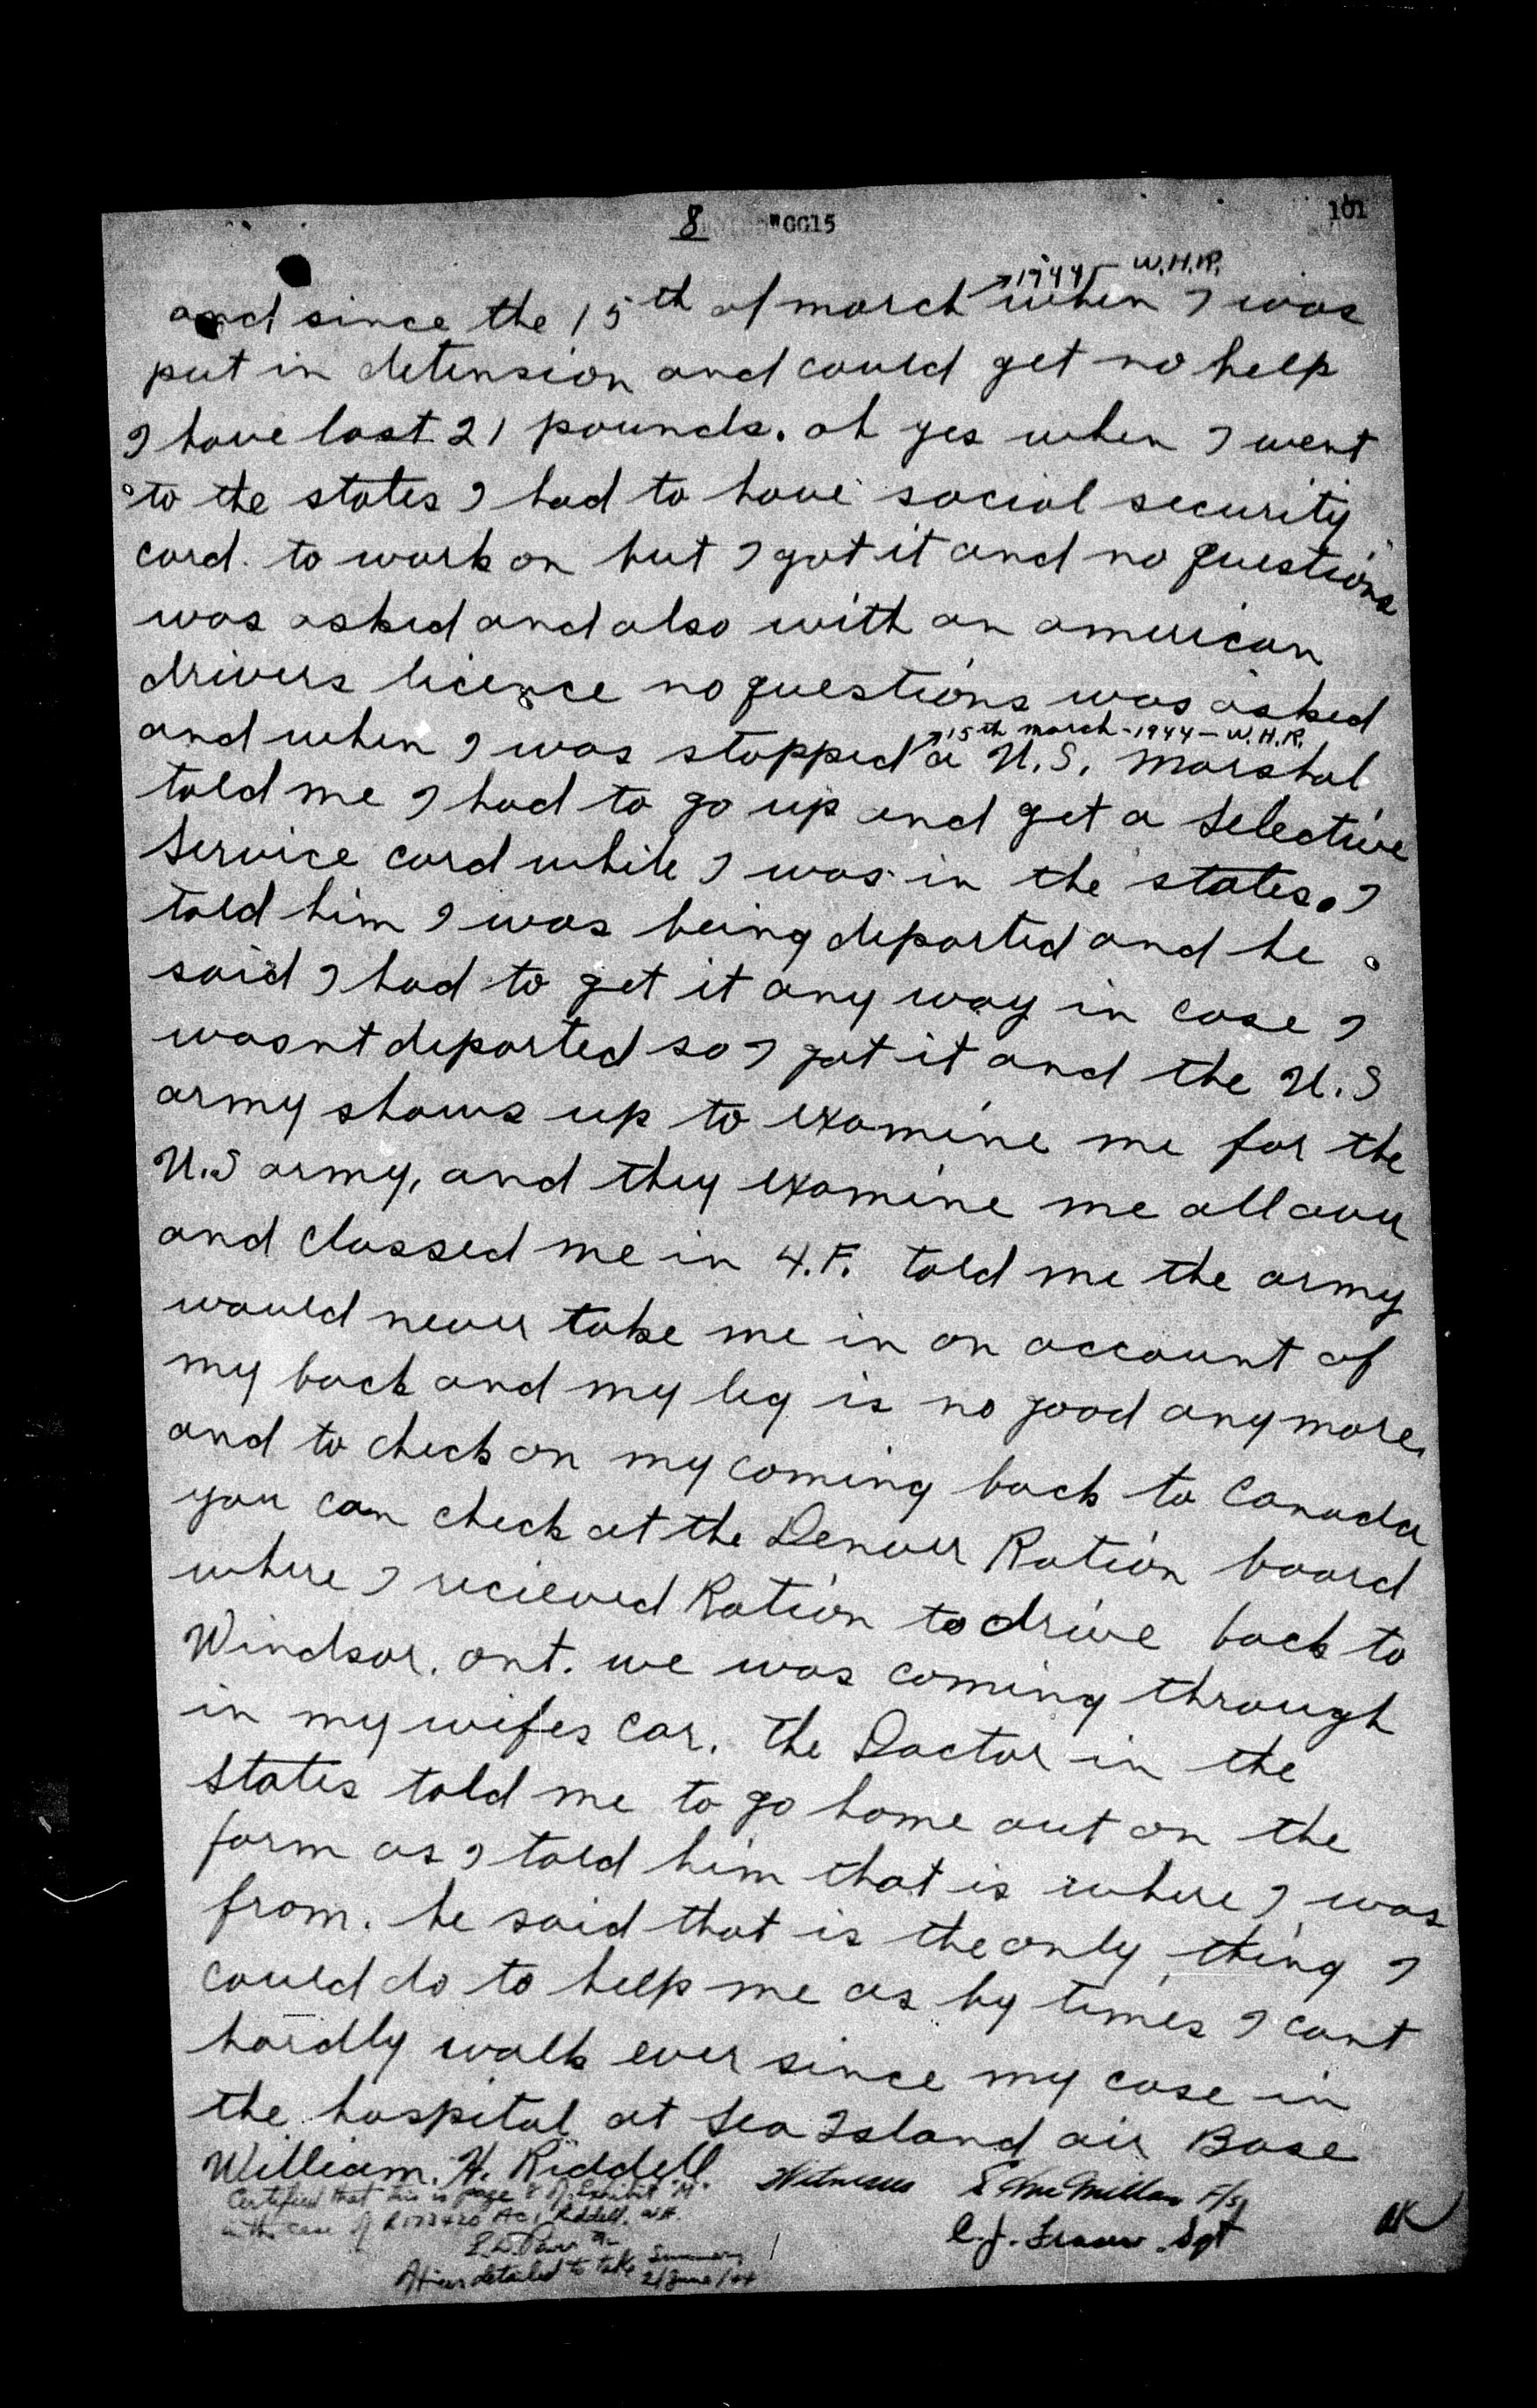 8 "GG15 101
1944 - W.H.R.
and since the 15th of march when I was
put in detension and could get no help
I have lost 21 pounds. oh yes when I went
to the states I had to have social security
card. to work on but I got it and no questions
was asked and also with an american
drivers licence no questions was asked
15th march - 1944 - W.H.R.
and when I was stopped a U.S. marshal
told me I had to go up and get a selective
service card while I was in the states. I
told him I was being deported and he
said I had to get it any way in case I
wasnt deported so I got it and the U.S
army shows up to examine me for the
U.S army, and they examine me all over
and classed me in 4.F. told me the army
would never take me in on account of
my back and my leg is no good anymore.
and to check on my coming back to Canada
you can check at the Denver Ration board
where I recieved Ration to drive back to
Windsor. ont. we was coming through
in my wifes car. the Doctor in the
states told me to go home out on the
farm as I told him that is where I was
from. he said that is the only thing I
could do to help me as by times I cant
hardly walk ever since my case in
the hospital at Sea Island air Base
William. H. Riddell Witness E McMillan F/S
Certified that this is page 8 of Exhibit "M"
in the case of AC1 Riddell, W.H.
C. J. Sgt
Officer detailed to take Summary
21 June/44